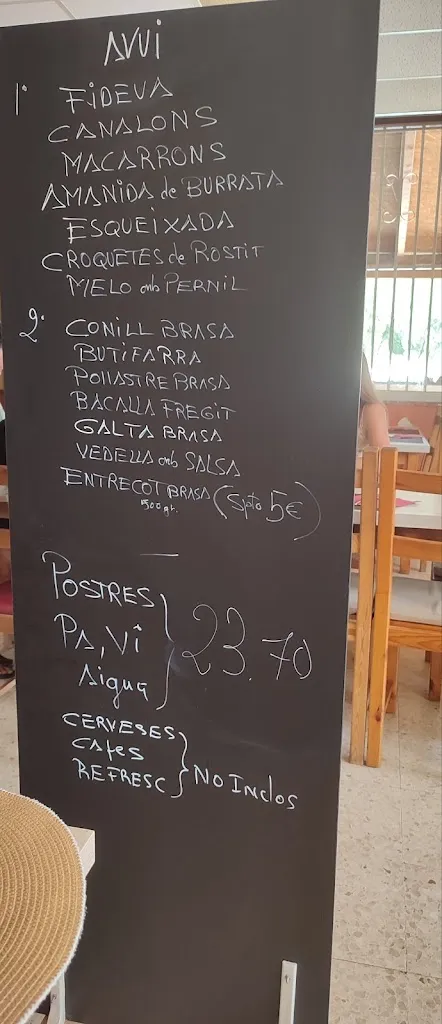 AVUI
1º FIDEUA
CANALONS
MACARRONS
AMANIDA de BURRATA
ESQUEIXADA
CROQUETES de ROSTIT
MELO amb PERNIL
2º CONILL BRASA
BUTIFARRA
POLLASTRE BRASA
BACALLA FREGIT
GALTA BRASA
VEDELLA amb SALSA
ENTRECOT BRASA (Spto 5€)
500gr.
POSTRES
PA, Vi
Aigua
23.70
CERVESES
CAfes
REFRESC
No Inclos